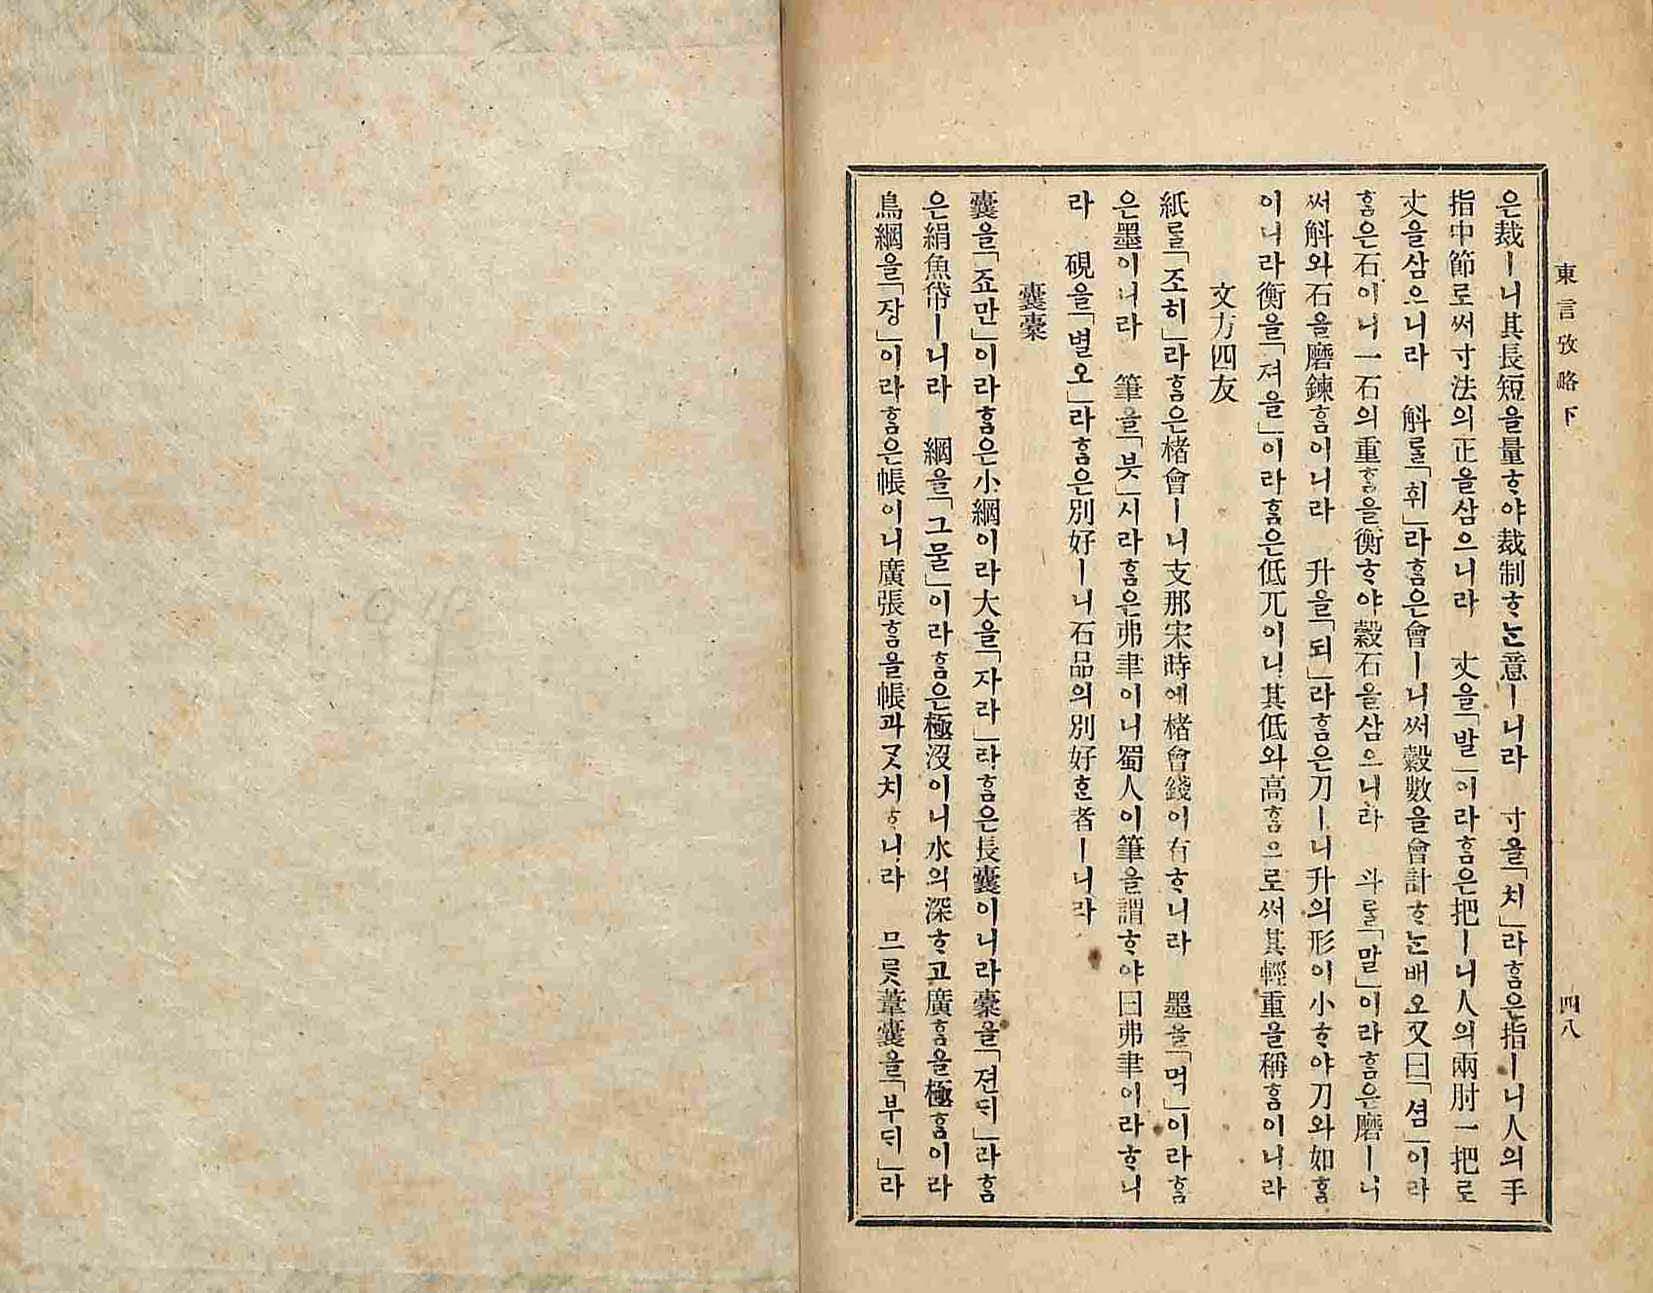 東言攷略下
四八
은裁ㅣ니其長短을量ᄒᆞ야裁制ᄒᆞᄂᆞᆫ意ㅣ니라 寸을「치」라ᄒᆞᆷ은指ㅣ니人의手
指中節로써寸法의正을삼으니라 丈을「발」이라ᄒᆞᆷ은把ㅣ니人의兩肘一把로
丈을삼으니라 斛를「휘」라ᄒᆞᆷ은會ㅣ니써穀數을會計ᄒᆞᄂᆞᆫ배오又曰「셤」이라
ᄒᆞᆷ은石이니一石의重ᄒᆞᆷ을衡ᄒᆞ야穀石을삼으니라 斗를「말」이라ᄒᆞᆷ은磨ㅣ니
써斛와石을磨鍊ᄒᆞᆷ이니라 升을「되」라ᄒᆞᆷ은刀ㅣ니升의形이小ᄒᆞ야刀와如ᄒᆞᆷ
이니라衡을「져을」이라ᄒᆞᆷ은低兀이니其低와高ᄒᆞᆷ으로써其輕重을稱ᄒᆞᆷ이니라
文方四友
紙를「조히」라ᄒᆞᆷ은楮會ㅣ니支那宋時에楮會錢이有ᄒᆞ니라 墨을「먹」이라ᄒᆞᆷ
은墨이니라 筆을「붓」시라ᄒᆞᆷ은弗聿이니蜀人이筆을謂ᄒᆞ야曰弗聿이라ᄒᆞ니
라 硯을「별오」라ᄒᆞᆷ은別好ㅣ니石品의別好ᄒᆞᆫ者ㅣ니라
囊槖
囊을「죠만」이라ᄒᆞᆷ은小網이라大을「자라」라ᄒᆞᆷ은長囊이니라槖을「젼ᄃᆡ」라ᄒᆞᆷ
은絹魚帒ㅣ니라 網을「그물」이라ᄒᆞᆷ은極沒이니水의深ᄒᆞ고廣ᄒᆞᆷ을極ᄒᆞᆷ이라
鳥網을「장」이라ᄒᆞᆷ은帳이니廣張ᄒᆞᆷ을帳과ᄀᆞᆺ치ᄒᆞ니라 므릇葦囊을「부ᄃᆡ」라